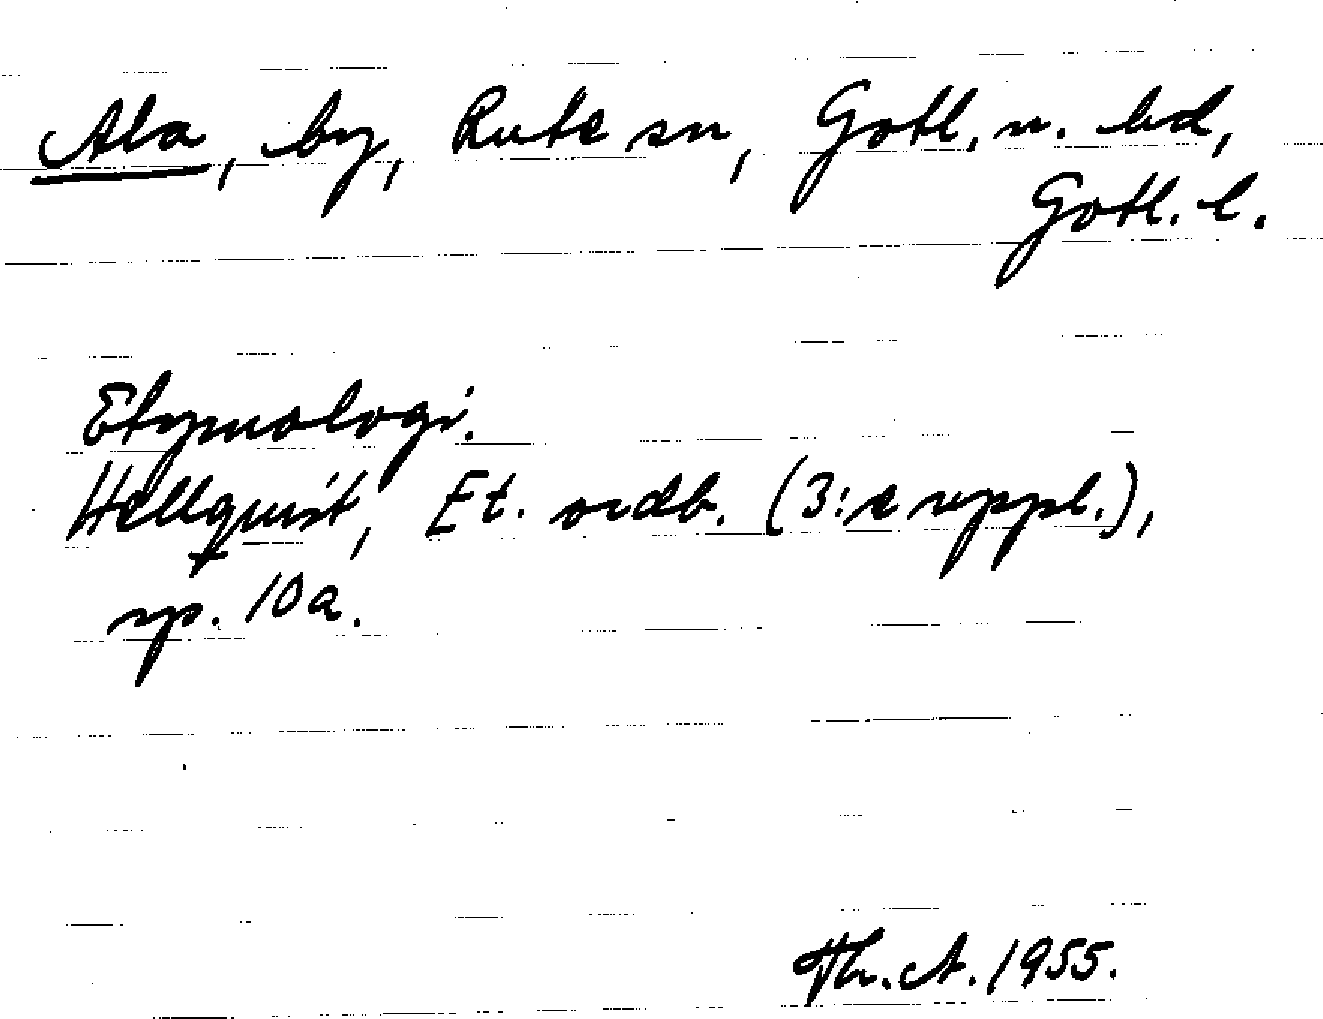 Ala, by, Rute sn, Gotl. n. hd,
Gotl. l.
Etymologi.
Hellquist, Et. ordb. (3:e uppl.),
sp. 10 a.
Th. A. 1955.